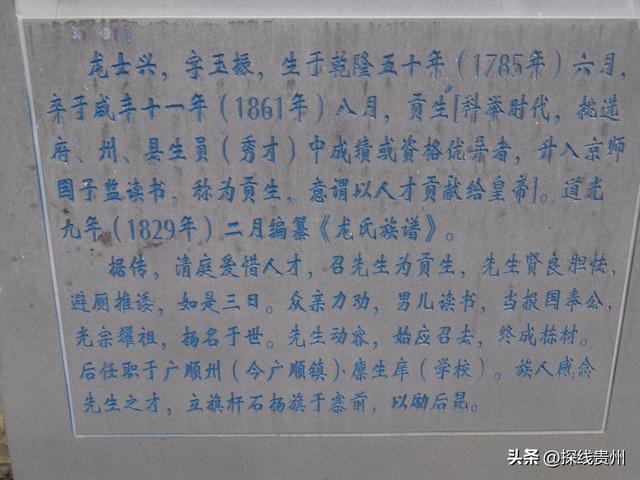 龙士兴，字玉振，生于乾隆五十年（1785年）六月，
卒于咸丰十一年（1861年）八月，贡生[科举时代，挑选
府、州、县生员（秀才）中成绩或资格优异者，升入京师
国子监读书，称为贡生，意谓以人才贡献给皇帝]。道光
九年（1829年）二月编纂《龙氏族谱》。
据传，清庭爱惜人才，召先生为贡生，先生贤良胆怯，
避厕推诿，如是三日。众亲力劝，男儿读书，当报国奉公，
光宗耀祖，扬名于世。先生动容，始应召去，终成栋材。
后任职于广顺州（今广顺镇）·廪生庠（学校）。族人感念
先生之才，立旗杆石扬旗于寨前，以励后昆。
头条 @探线贵州